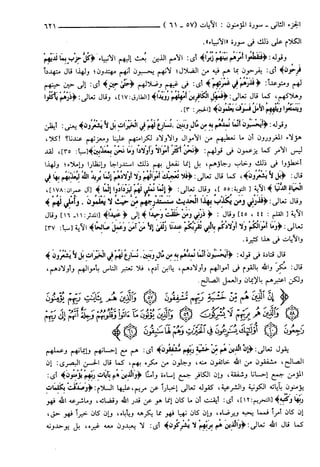 الجزء الثاني - سورة المؤمنون : الآيات (٥٧ - ٦١) ٦٢١
الكلام على ذلك في سورة «الأنبياء».
وقوله: ﴿فَتَقَطَّعُوا أَمْرَهُم بَيْنَهُمْ زُبُرًا﴾ أي: الأمم الذين بُعث إليهم الأنبياء ﴿كُلُّ حِزْبٍ بِمَا لَدَيْهِمْ
فَرِحُونَ﴾ أي: يفرحون بما هم فيه من الضلال؛ لأنهم يحسبون أنهم مهتدون؛ ولهذا قال متهدداً
لهم ومتوعداً: ﴿فَذَرْهُمْ فِي غَمْرَتِهِمْ﴾ أي: في غيهم وضلالهم ﴿حَتَّى حِينٍ﴾ أي: إلى حين حينهم
وهلاكهم، كما قال تعالى: ﴿فَمَهِّلِ الْكَافِرِينَ أَمْهِلْهُمْ رُوَيْدًا﴾ [الطارق:١٧]، وقال تعالى: ﴿ذَرْهُمْ يَأْكُلُوا
وَيَتَمَتَّعُوا وَيُلْهِهِمُ الْأَمَلُ فَسَوْفَ يَعْلَمُونَ﴾ [الحجر: ٣].
وقوله: ﴿أَيَحْسَبُونَ أَنَّمَا نُمِدُّهُم بِهِ مِن مَّالٍ وَبَنِينَ. نُسَارِعُ لَهُمْ فِي الْخَيْرَاتِ بَل لَّا يَشْعُرُونَ﴾ يعني: أيظن
هؤلاء المغرورون أن ما نعطيهم من الأموال والأولاد لكرامتهم علينا ومعزتهم عندنا؟ كلا،
ليس الأمر كما يزعمون في قولهم: ﴿نَحْنُ أَكْثَرُ أَمْوَالًا وَأَوْلَادًا وَمَا نَحْنُ بِمُعَذَّبِينَ﴾ [سبأ: ٣٥]، لقد
أخطؤوا في ذلك وخاب رجاؤهم، بل إنما نفعل بهم ذلك استدراجاً وإنظاراً وإملاء؛ ولهذا
قال: ﴿بَل لَّا يَشْعُرُونَ﴾، كما قال تعالى: ﴿فَلَا تُعْجِبْكَ أَمْوَالُهُمْ وَلَا أَوْلَادُهُمْ إِنَّمَا يُرِيدُ اللَّهُ لِيُعَذِّبَهُم بِهَا فِي
الْحَيَاةِ الدُّنْيَا﴾ الآية [التوبة: ٥٥]، وقال تعالى: ﴿إِنَّمَا نُمْلِي لَهُمْ لِيَزْدَادُوا إِثْمًا﴾ [آل عمران:١٧٨]،
وقال تعالى: ﴿فَذَرْنِي وَمَن يُكَذِّبُ بِهَذَا الْحَدِيثِ سَنَسْتَدْرِجُهُم مِّنْ حَيْثُ لَا يَعْلَمُونَ. وَأُمْلِي لَهُمْ﴾
الآية [القلم: ٤٤، ٤٥] وقال: ﴿ذَرْنِي وَمَنْ خَلَقْتُ وَحِيدًا﴾ إلى ﴿عَنِيدًا﴾ [المدثر:١١، ١٦] وقال
تعالى: ﴿وَمَا أَمْوَالُكُمْ وَلَا أَوْلَادُكُم بِالَّتِي تُقَرِّبُكُمْ عِندَنَا زُلْفَى إِلَّا مَنْ آمَنَ وَعَمِلَ صَالِحًا﴾ الآية [سبأ: ٣٧]
والآيات في هذا كثيرة.
قال قتادة في قوله: ﴿أَيَحْسَبُونَ أَنَّمَا نُمِدُّهُم بِهِ مِن مَّالٍ وَبَنِينَ. نُسَارِعُ لَهُمْ فِي الْخَيْرَاتِ بَل لَّا يَشْعُرُونَ﴾
قال: مُكِر والله بالقوم في أموالهم وأولادهم، ياابن آدم، فلا تعتبر الناس بأموالهم وأولادهم،
ولكن اعتبرهم بالإيمان والعمل الصالح.
﴿إِنَّ الَّذِينَ هُم مِّنْ خَشْيَةِ رَبِّهِم مُّشْفِقُونَ ۝ وَالَّذِينَ هُم بِآيَاتِ رَبِّهِمْ يُؤْمِنُونَ
۝ وَالَّذِينَ هُم بِرَبِّهِمْ لَا يُشْرِكُونَ ۝ وَالَّذِينَ يُؤْتُونَ مَا آتَوا وَّقُلُوبُهُمْ وَجِلَةٌ أَنَّهُمْ إِلَى رَبِّهِمْ
رَاجِعُونَ ۝ أُوْلَئِكَ يُسَارِعُونَ فِي الْخَيْرَاتِ وَهُمْ لَهَا سَابِقُونَ ۝﴾
يقول تعالى: ﴿إِنَّ الَّذِينَ هُم مِّنْ خَشْيَةِ رَبِّهِم مُّشْفِقُونَ﴾ أي: هم مع إحسانهم وإيمانهم وعملهم
الصالح، مشفقون من الله خائفون منه، وجلون من مكره بهم، كما قال الحسن البصري: إن
المؤمن جمع إحساناً وشفقة، وإن الكافر جمع إساءة وأمناً ﴿وَالَّذِينَ هُم بِآيَاتِ رَبِّهِمْ يُؤْمِنُونَ﴾ أي:
يؤمنون بآياته الكونية والشرعية، كقوله تعالى إخباراً عن مريم، عليها السلام: ﴿وَصَدَّقَتْ بِكَلِمَاتِ
رَبِّهَا وَكُتُبِهِ﴾ [التحريم:١٢]، أي: أيقنت أن ما كان إنما هو عن قدر الله وقضائه، وماشرعه الله فهو
إن كان أمراً فمما يحبه ويرضاه، وإن كان نهياً فهو مما يكرهه ويأباه، وإن كان خيراً فهو حق،
كما قال الله تعالى: ﴿وَالَّذِينَ هُم بِرَبِّهِمْ لَا يُشْرِكُونَ﴾ أي: لا يعبدون معه غيره، بل يوحدونه